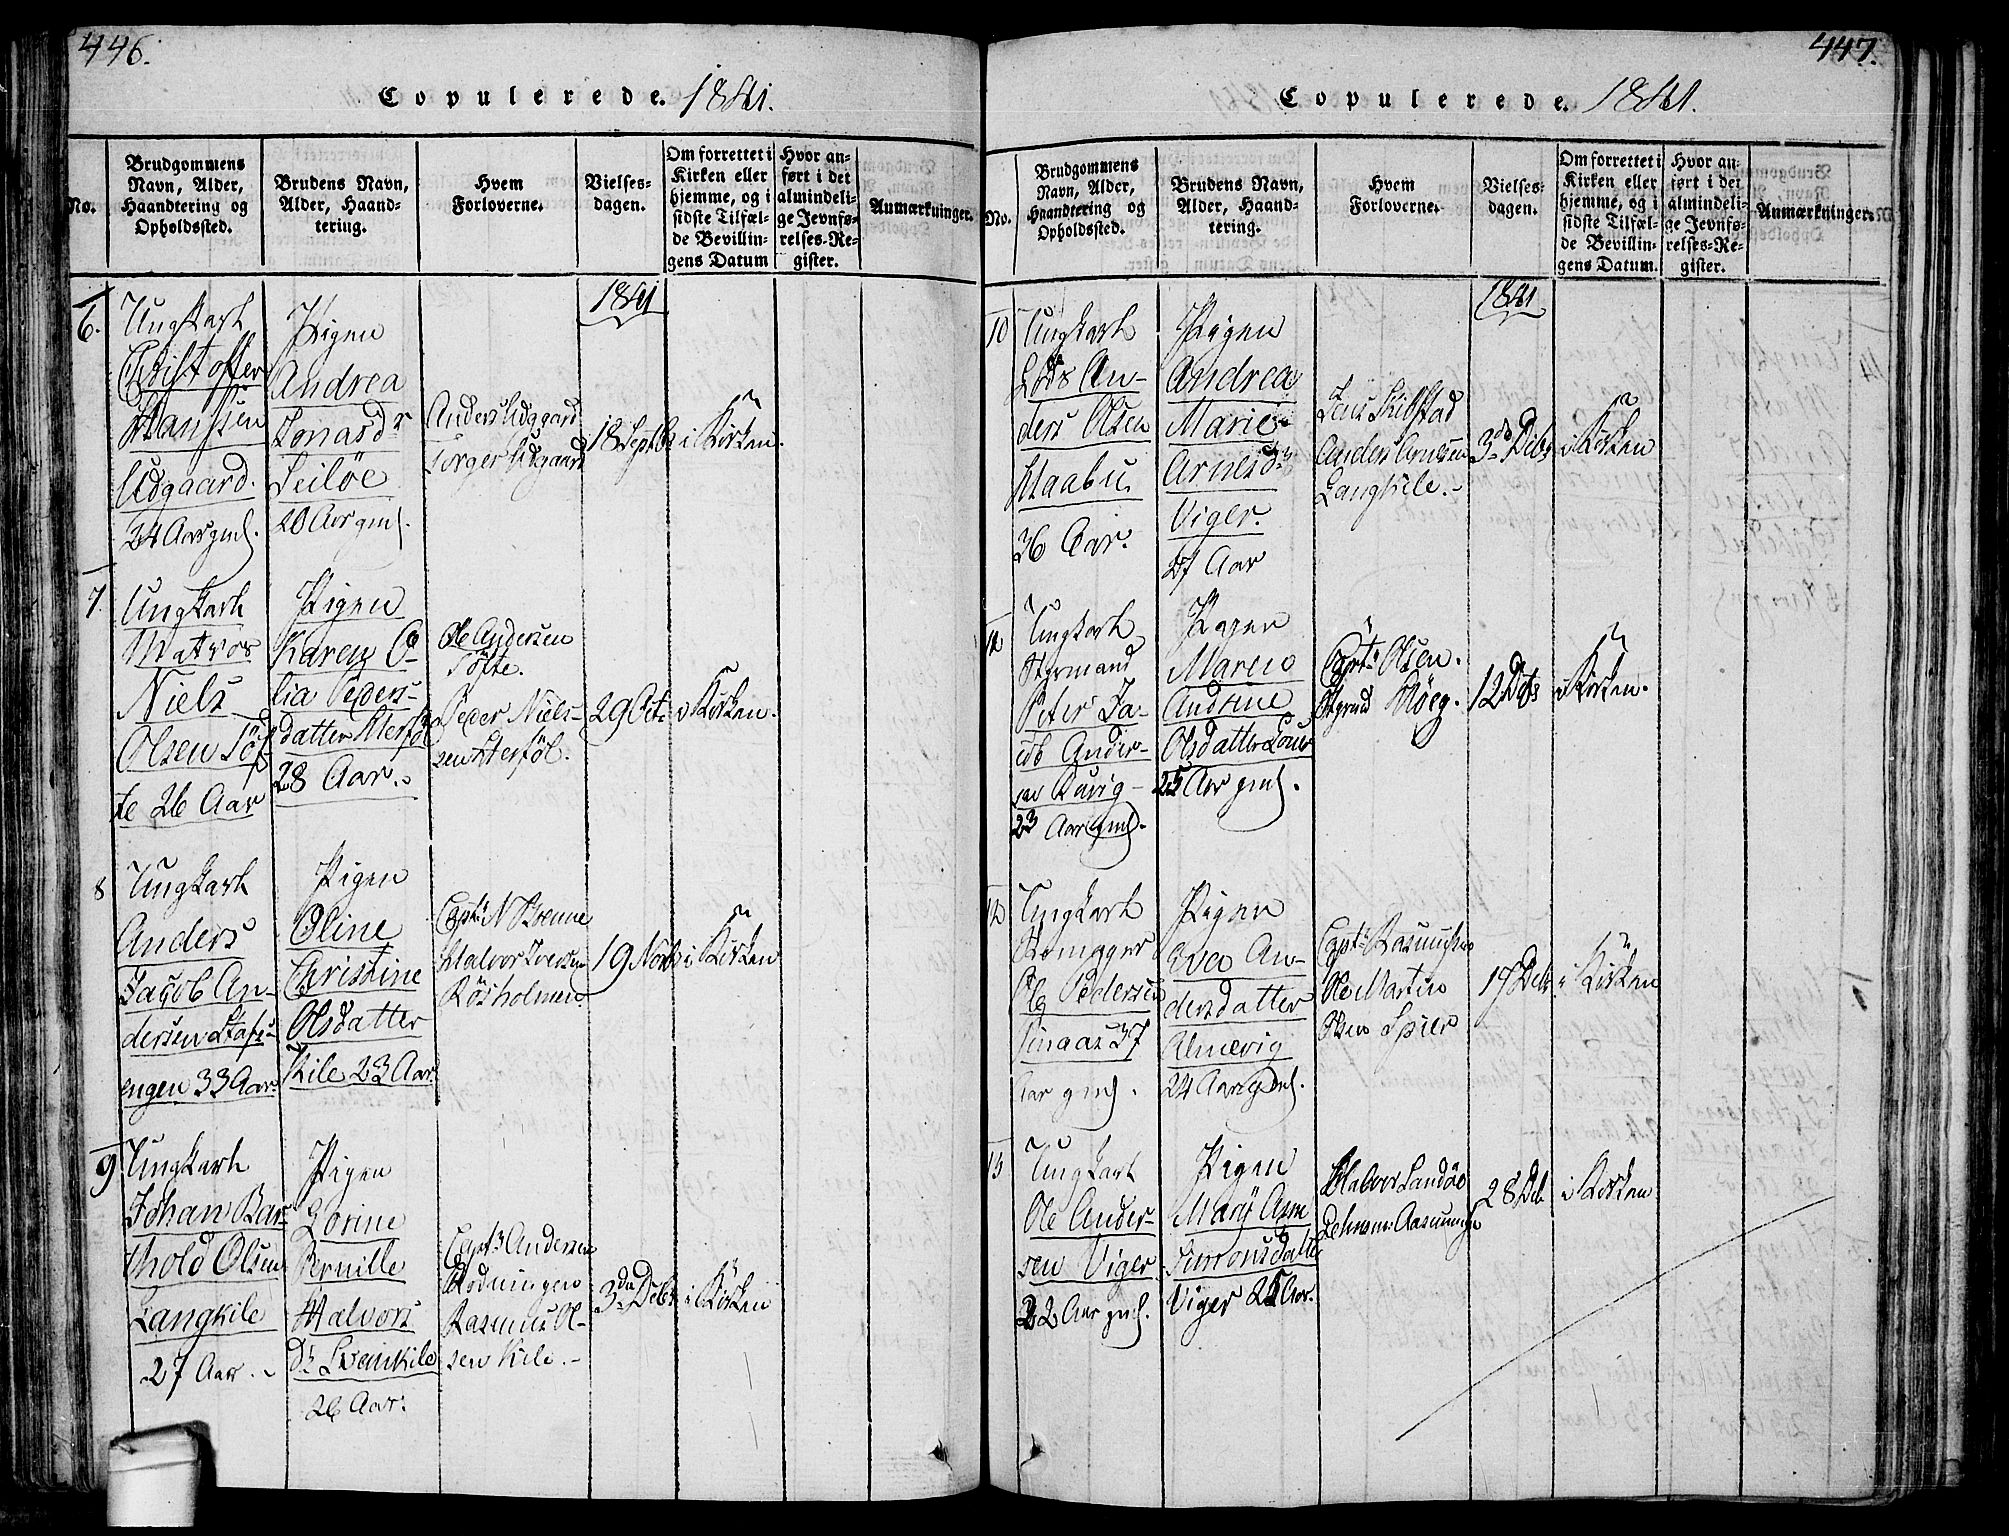 446.
Copulerede. 1841.
No.
Brudgommens
Navn, Alder,
Haandtering og
Opholdssted.
Brudens Navn,
Alder, Haand-
tering.
Hvem
Forloverne.
Vielses-
dagen.
Om forrettet i
Kirken eller
hjemme, og i
sidste Tilfæl-
de Bevillin-
gens Datum
Hvor an-
ført i det
almindeli-
ge Jevnfø-
relses-Re-
gister.
Anmærkninger.
6.
Ungkarl
Christoffer
Hanssen
Udgaard.
24 Aar gml.
Pigen
Andrea
Jonasdr
Leilöe
20 Aar gml.
Anders Udgaard
Torger Udgaard
1841
18 Septbr
i Kirken.
7.
Ungkarl
Matros
Niels
Olsen Töf-
te 26 Aar
Pigen
Karen O-
lia Peders-
datter Herföl
28 Aar.
Ole Andersen
Töfte.
Peder Niels-
sen Herföl.
29 Oct.
i Kirken.
8
Ungkarl
Anders
Jacob An-
dersen
engen 33 Aar.
Pigen
Oline
Christine
Olsdatter
Kile 23 Aar.
Capt: N
Halvor Iversen
Rösholmen
19 Novb
i Kirken
9
Ungkarl
Johan Bar-
thold Olsen
Langkile
27 Aar.
Pigen
Lorine
Pernille
Halvors
Dr. Svenkile
26 Aar.
Capt: Andersen
Rödningen
Rasmus Ol-
sen Kile.
3die Debr
i Kirken
447.
Copulerede. 1841.
No.
Brudgommens
Navn, Alder,
Haandtering og
Opholdssted.
Brudens Navn,
Alder, Haand-
tering.
Hvem
Forloverne.
Vielses-
dagen.
Om forrettet i
Kirken eller
hjemme, og i
sidste Tilfæl-
de Bevillin-
gens Datum.
Hvor an-
ført i det
almindeli-
ge Jevnfø-
relses-Re-
gister.
Anmærkninger.
10
Ungkarl
Lods An-
ders Olsen
Haabu
26 Aar.
Pigen
Andrea
Marie
Arnesdr
Viger.
27 Aar
Jens Skibstad
Anders Arnesen
Langkile.
1841
3die Debr
i Kirken
Ungkarl
Styrmand
Peter Ja-
cob Ander-
sen
23 Aar gml.
Pigen
Maren
Andrine
Olsdatter
25 Aar gml.
Capt: Olsen.
12 Debr
i Kirken.
12
Ungkarl
Ole Pedersen
37
Aar gml.
Pigen
Eva An-
dersdatter
24 Aar gml.
Capt: Rasmussen
Ole Martin
Olsen Spier
17 Debr
i Kirken
13
Ungkarl
Ole Ander-
sen Viger
22 Aar gml.
Pigen
Mary Ann
Simonsdatter
Viger 25 Aar.
Halvor Sandöe
28 Deb
i Kirken